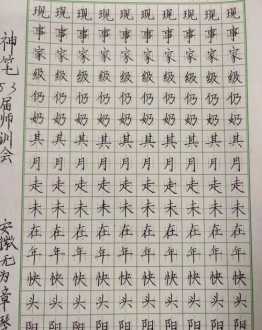 神笔
53届师训会
安徽无为章琴
现现现现现现现现现
事事事事事事事事事
家家家家家家家家家
级级级级级级级级级
仍仍仍仍仍仍仍仍仍
奶奶奶奶奶奶奶奶奶
其其其其其其其其其
月月月月月月月月月
走走走走走走走走走
未未未未未未未未未
在在在在在在在在在
年年年年年年年年年
快快快快快快快快快
头头头头头头头头头
阳阳阳阳阳阳阳阳阳